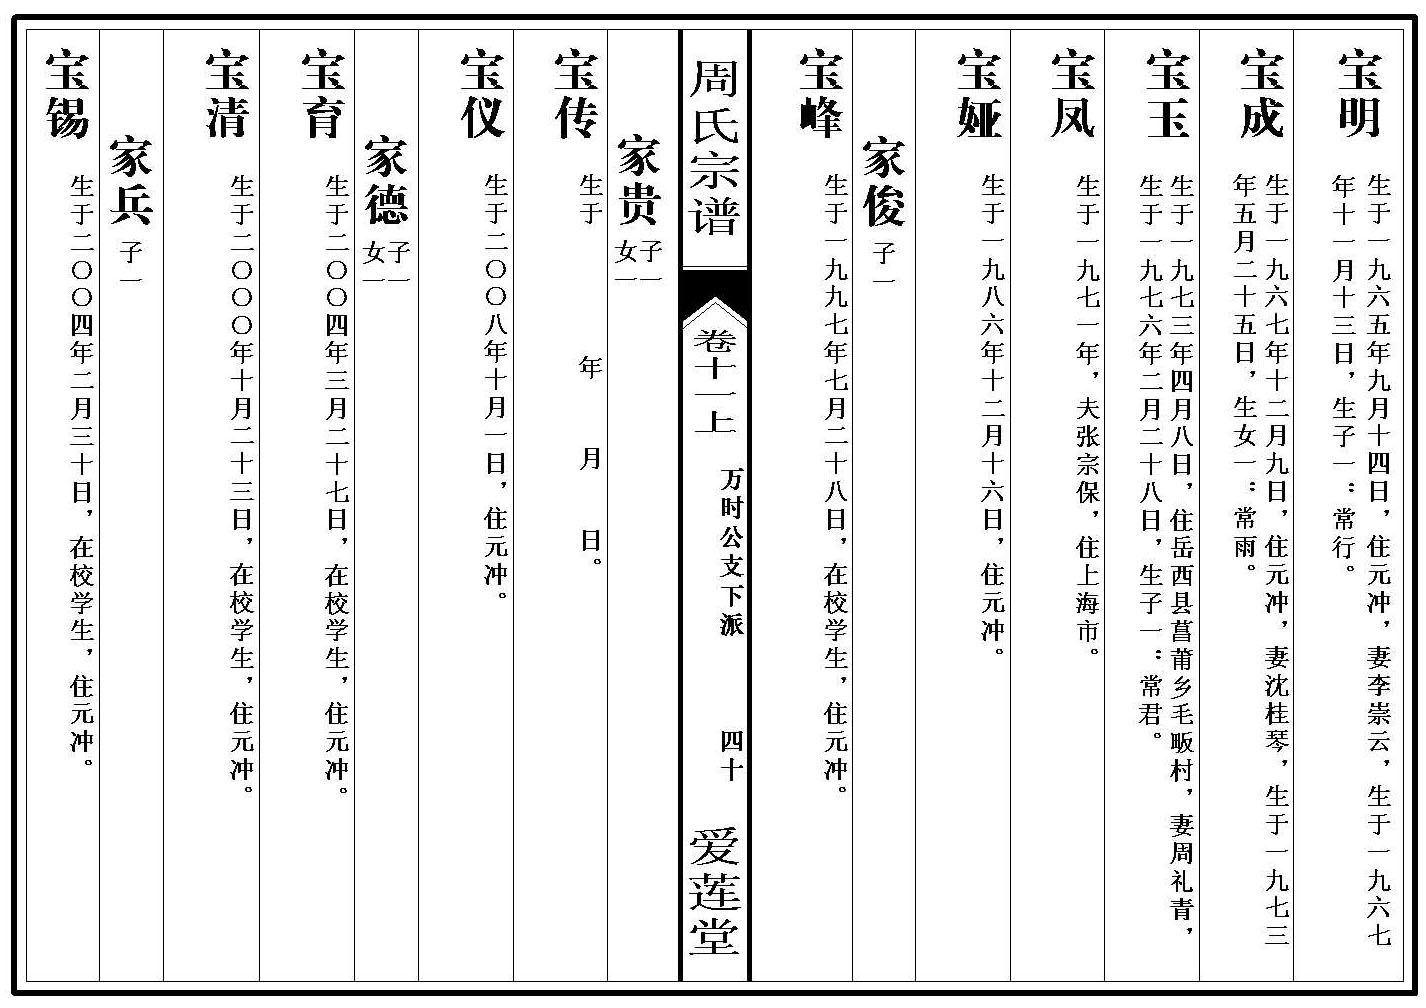 宝明
生于一九六五年九月十四日，住元冲，妻李崇云，生于一九六七
年十一月十三日，生子一：常行。
宝成
生于一九六七年十二月九日，住元冲，妻沈桂琴，生于一九七三
年五月二十五日，生女一：常雨。
宝玉
生于一九七三年四月八日，住岳西县菖莆乡毛畈村，妻周礼青，
生于一九七六年二月二十八日，生子一：常君。
宝凤
生于一九七一年，夫张宗保，住上海市。
宝娅
生于一九八六年十二月十六日，住元冲。
家俊
子一
宝峰
生于一九九七年七月二十八日，在校学生，住元冲。
周氏宗谱
卷十一上
万时公支下派
四十
爱莲堂
家贵
子一
女一
宝传
生于 年 月 日。
宝仪
生于二〇〇八年十月一日，住元冲。
家德
子一
女一
宝育
生于二〇〇四年三月二十七日，在校学生，住元冲。
宝清
生于二〇〇〇年十月二十三日，在校学生，住元冲。
家兵
子一
宝锡
生于二〇〇四年二月三十日，在校学生，住元冲。